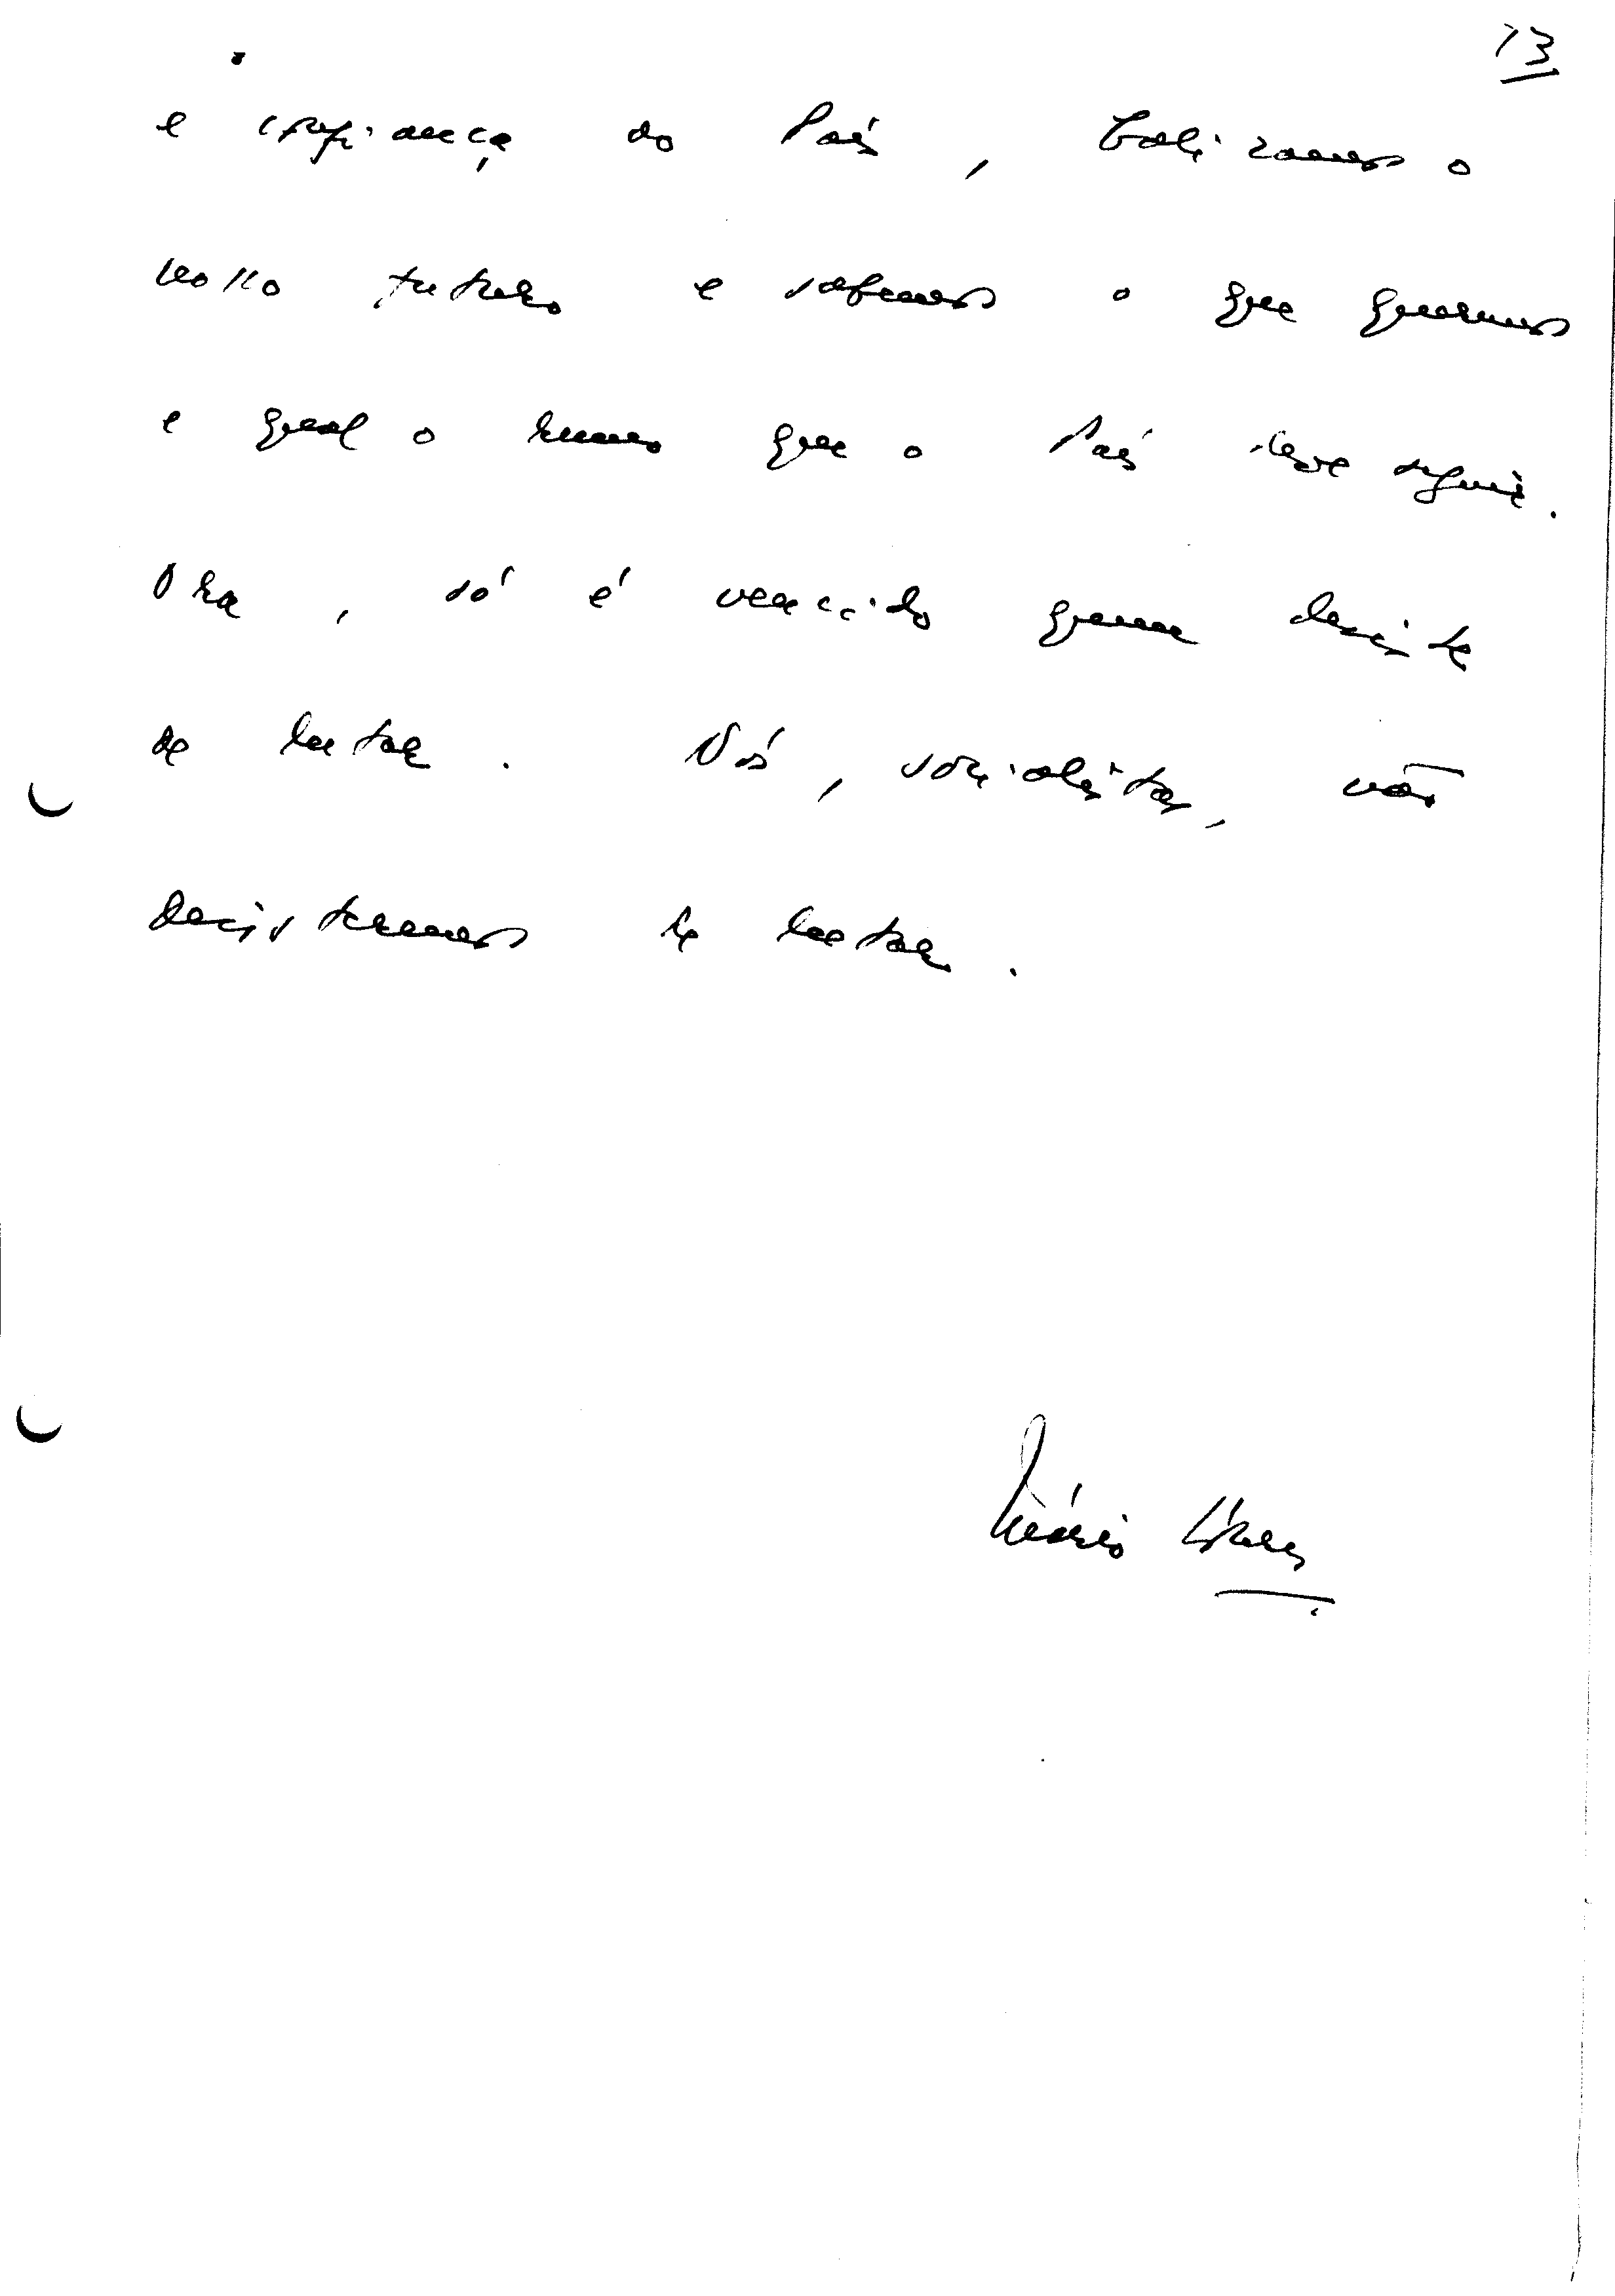 13
e confiança do País, balizamos o
nosso futuro e sabemos o que queremos
e qual o rumo que o País deve seguir.
Ora, só é vencido quem desiste
de lutar. Nós, socialistas, não
desistiremos de lutar.
Mário Soares